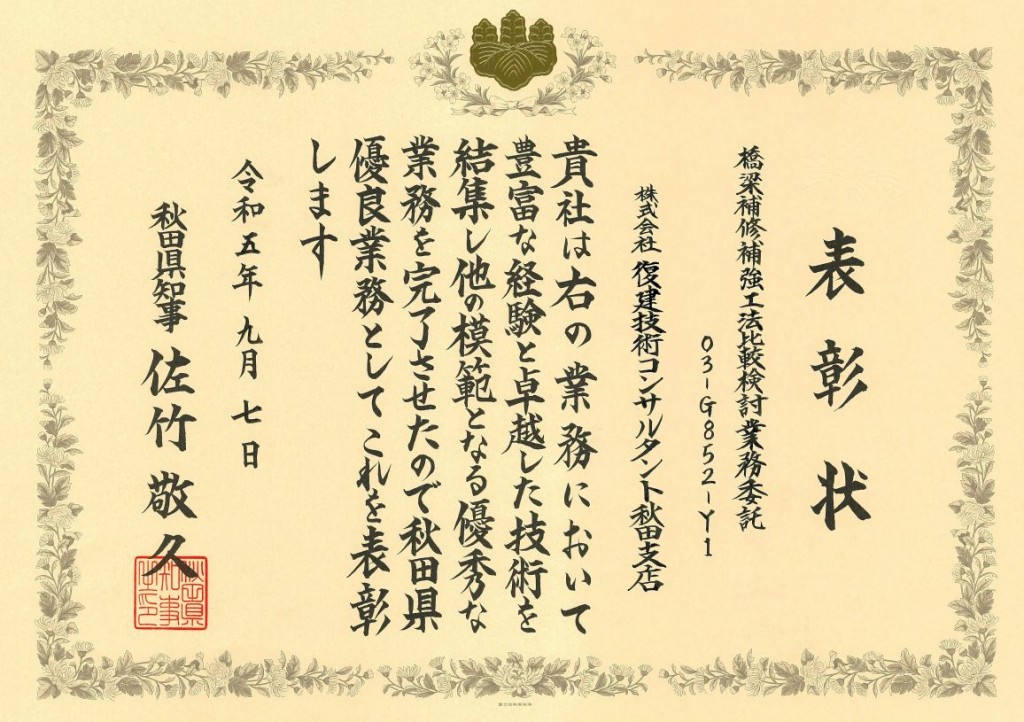 表彰状
橋梁補修補強工法比較検討業務委託
03-G852-Y1
株式会社 復建技術コンサルタント秋田支店
貴社は右の業務において
豊富な経験と卓越した技術を
結集し他の模範となる優秀な
業務を完了させたので秋田県
優良業務としてこれを表彰
します
令和五年九月七日
秋田県知事 佐竹敬久
秋田県
知事
之印